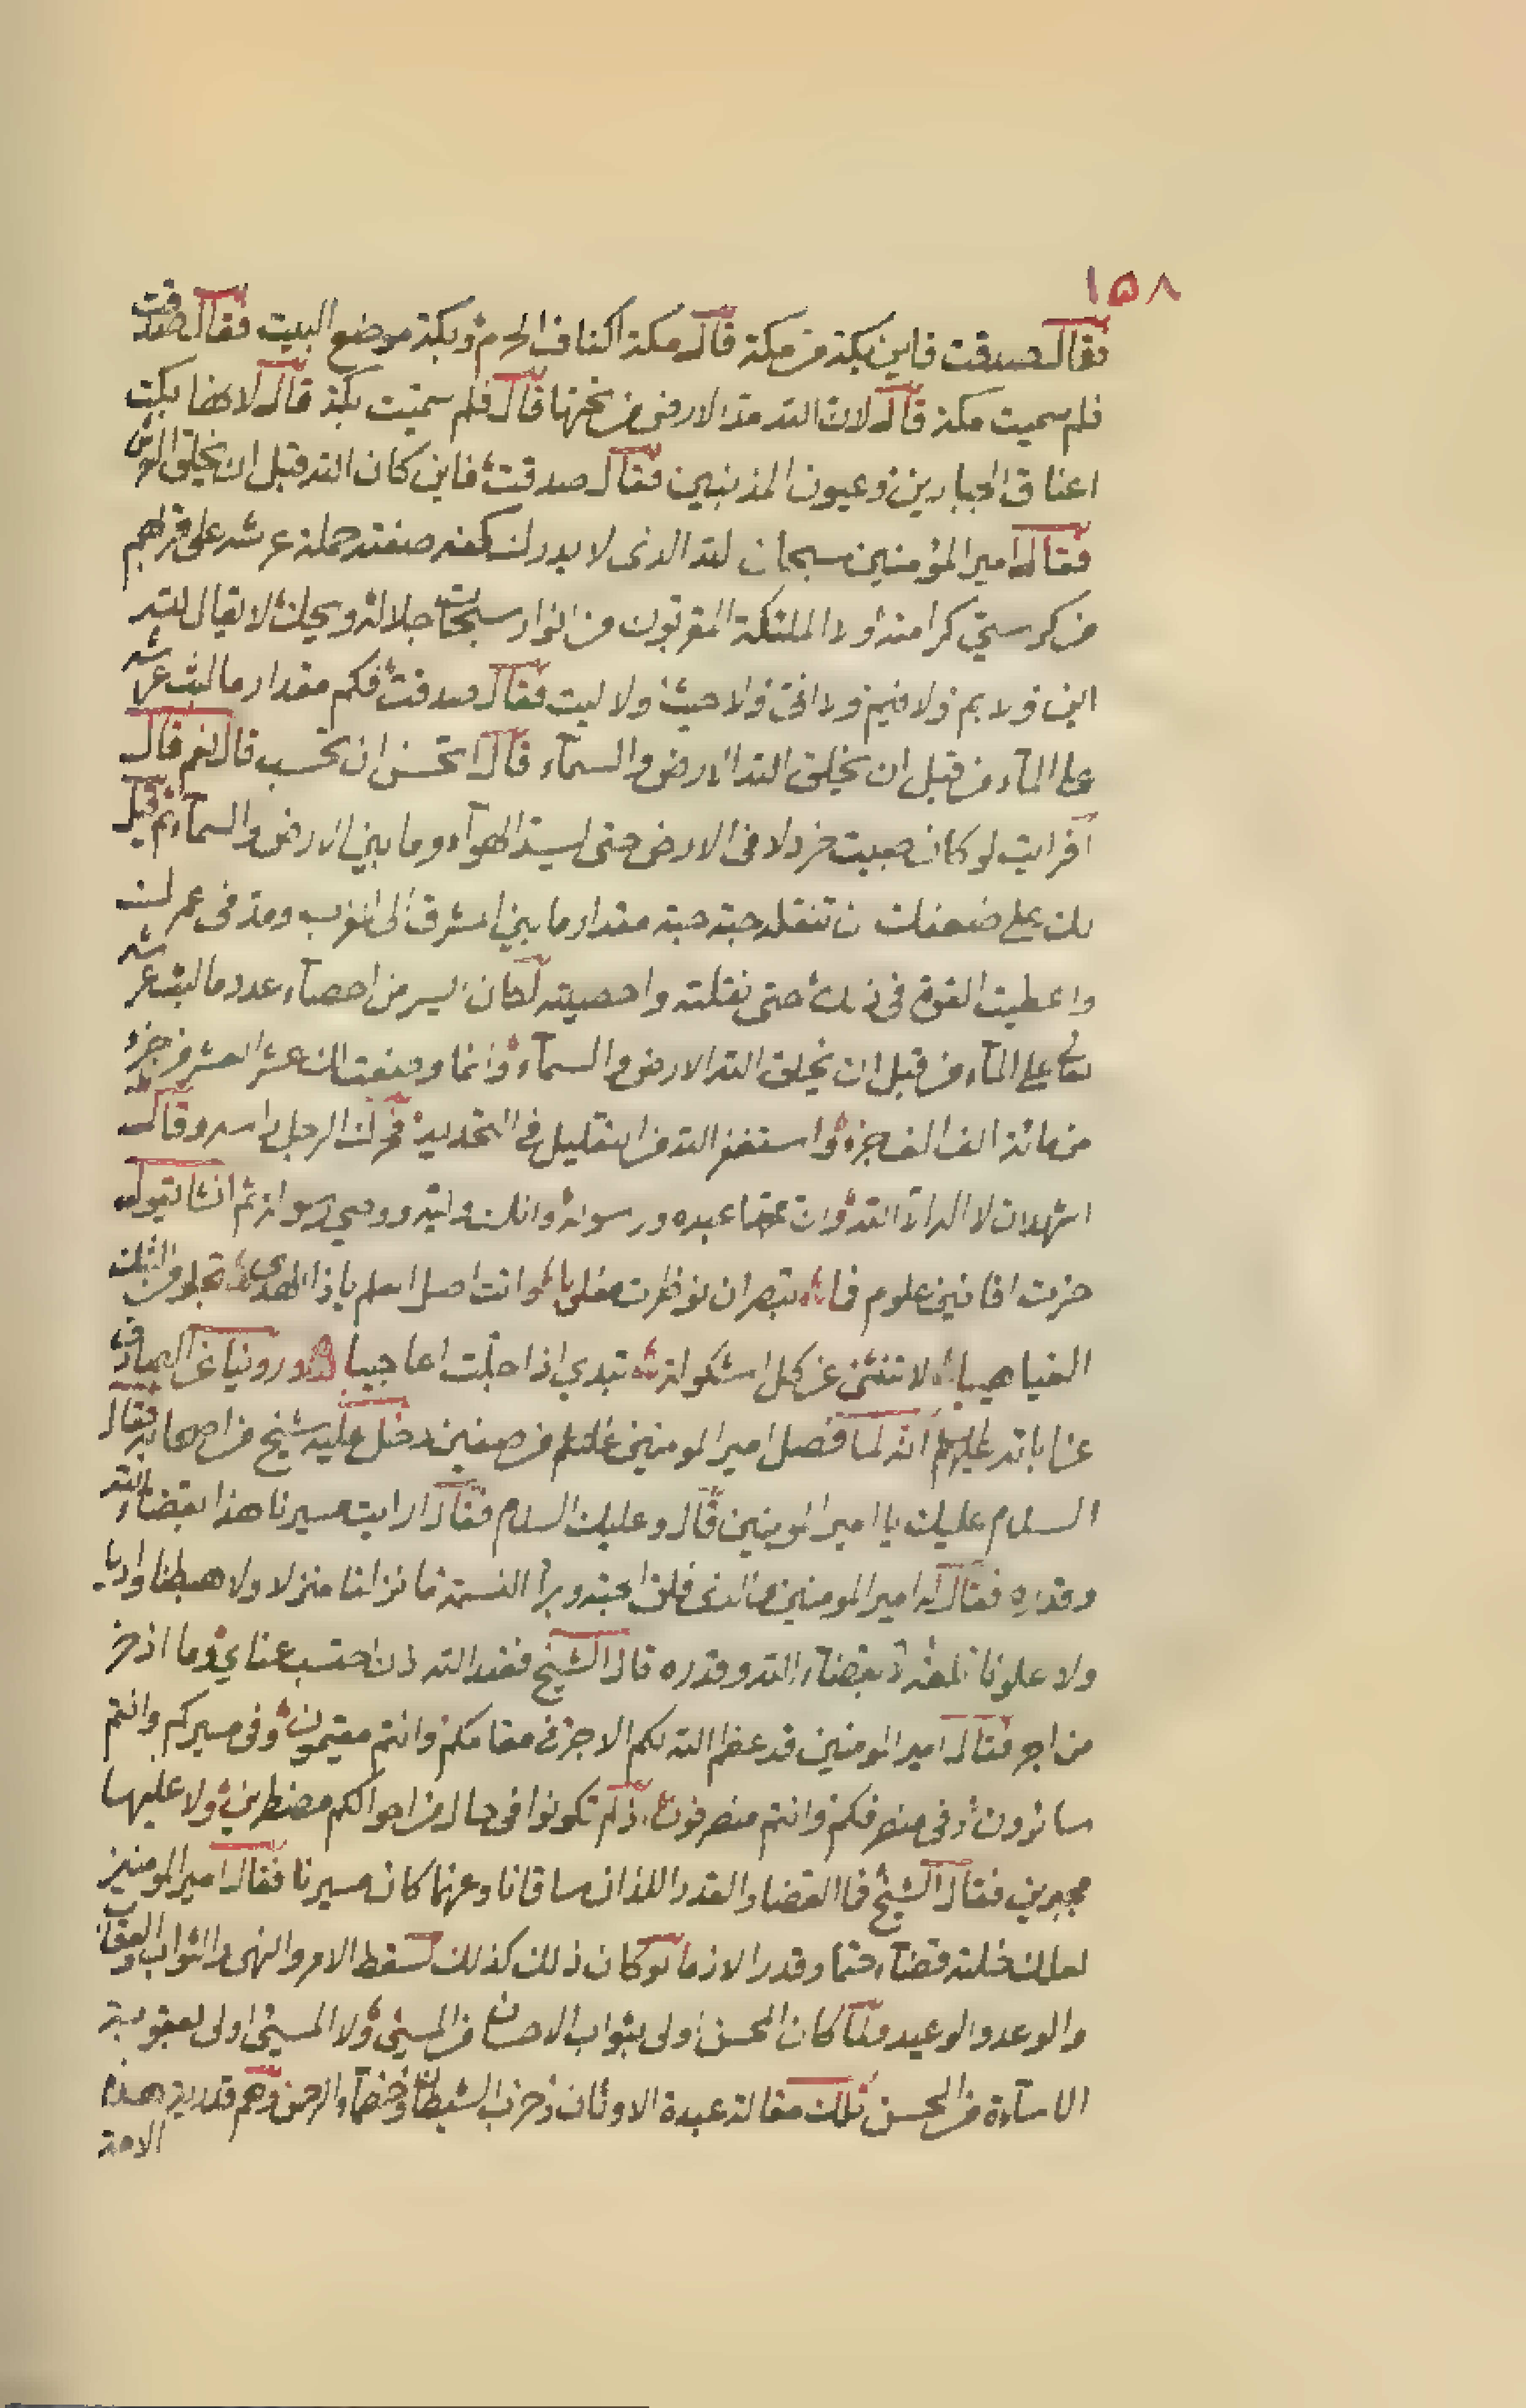 ١٥٨
فقال صدقت فاين بكة من مكة قال مكة اكناف الحرم وبكة موضع البيت فقال صدقت
فلم سميت مكة قال لان الله مد الارض من تحتها قال فلم سميت بكة قال لانها بكت
اعناق الجبارين وعيون المذنبين فقال صدقت فاين كان الله قبل ان يخلق العرش
فقال امير المؤمنين سبحان الله الذى لا يدرك كنه صفته حملة عرشه على قربهم
من كرسي كرامته ولا الملئكة المقربون من انوار سبحات جلاله ويحك لا يقال لله
اين ولا بم ولا فيم ولا انى ولا حيث ولا ليت فقال صدقت فكم مقدار ما لبث عرشه
على المآء من قبل ان يخلق الله الارض والسمآء قال اتحسن ان تحسب قال نعم قال
افرايت لو كان صببت خردلا فى الارض حتى يسد الهوآء وما بين الارض والسمآء ثم قيل
لك على ضعفك ان تنقله حبة حبة مقدار ما بين المشرق الى المغرب ومد فى عمرك
واعطيت القوة فى ذلك حتى نقلته واحصيته لكان ايسر من احصآء عدد ما لبث عرشه
تعالى على المآء من قبل ان يخلق الله الارض والسمآء وانما وصفت لك عشر العشر من جزء
من مائة الف الف جزء واستغفر الله من التقليل فى التحديد فحرك الرجل راسه وقال
اشهد ان لا اله الا الله وان محمدا عبده ورسوله وانك وليه ووصي رسوله ثم انشا يقول
حزت افانين علوم فما تبصر ان نوظرت مغلوبا وانت اصل العلم يا ذا الهدى تجلو من الشك
الغياهيبا لا تنثنى عن كل اشكولة تبدي اذا حلّت اعاجيبا وروينا عن الصادق
عن ابائه عليهم انه لما فصل امير المومنين من صفين دخل عليه شيخ من اصحابه فقال
السلام عليك يا امير المومنين قال وعليك السلام فقال ارايت مسيرنا هذا بقضاء الله
وقدره فقال له امير المومنين والذى فلق الحبة وبرأ النسمة ما نزلنا منزلا ولا هبطنا واديا
ولا علونا تلعة الا بقضآء الله وقدره قال الشيخ فعند الله اذن احتسب عنايي وما اذخر
من اجر فقال امير المومنين قد عظم الله لكم الاجر فى مقامكم وانتم مقيمون وفى مسيركم وانتم
سائرون وفى منصرفكم وانتم منصرفون ولم تكونوا فى حال من احوالكم مضطرين ولا عليها
مجبرين فقال الشيخ فما القضا والقدر اللذان ساقانا وعنهما كان مسيرنا فقال امير المومنين
لعلك خلته قضآء حتما وقدرا لازما لو كان ذلك كذلك لسقط الامر والنهى والثواب والعقاب
والوعد والوعيد ولما كان المحسن اولى بثواب الاحسان من المسئ ولا المسئ اولى بعقوبة
الاسآءة من المحسن تلك مقالة عبدة الاوثان وحزب الشيطان وخصمآء الرحمن وهم قدرية هذه
الامة